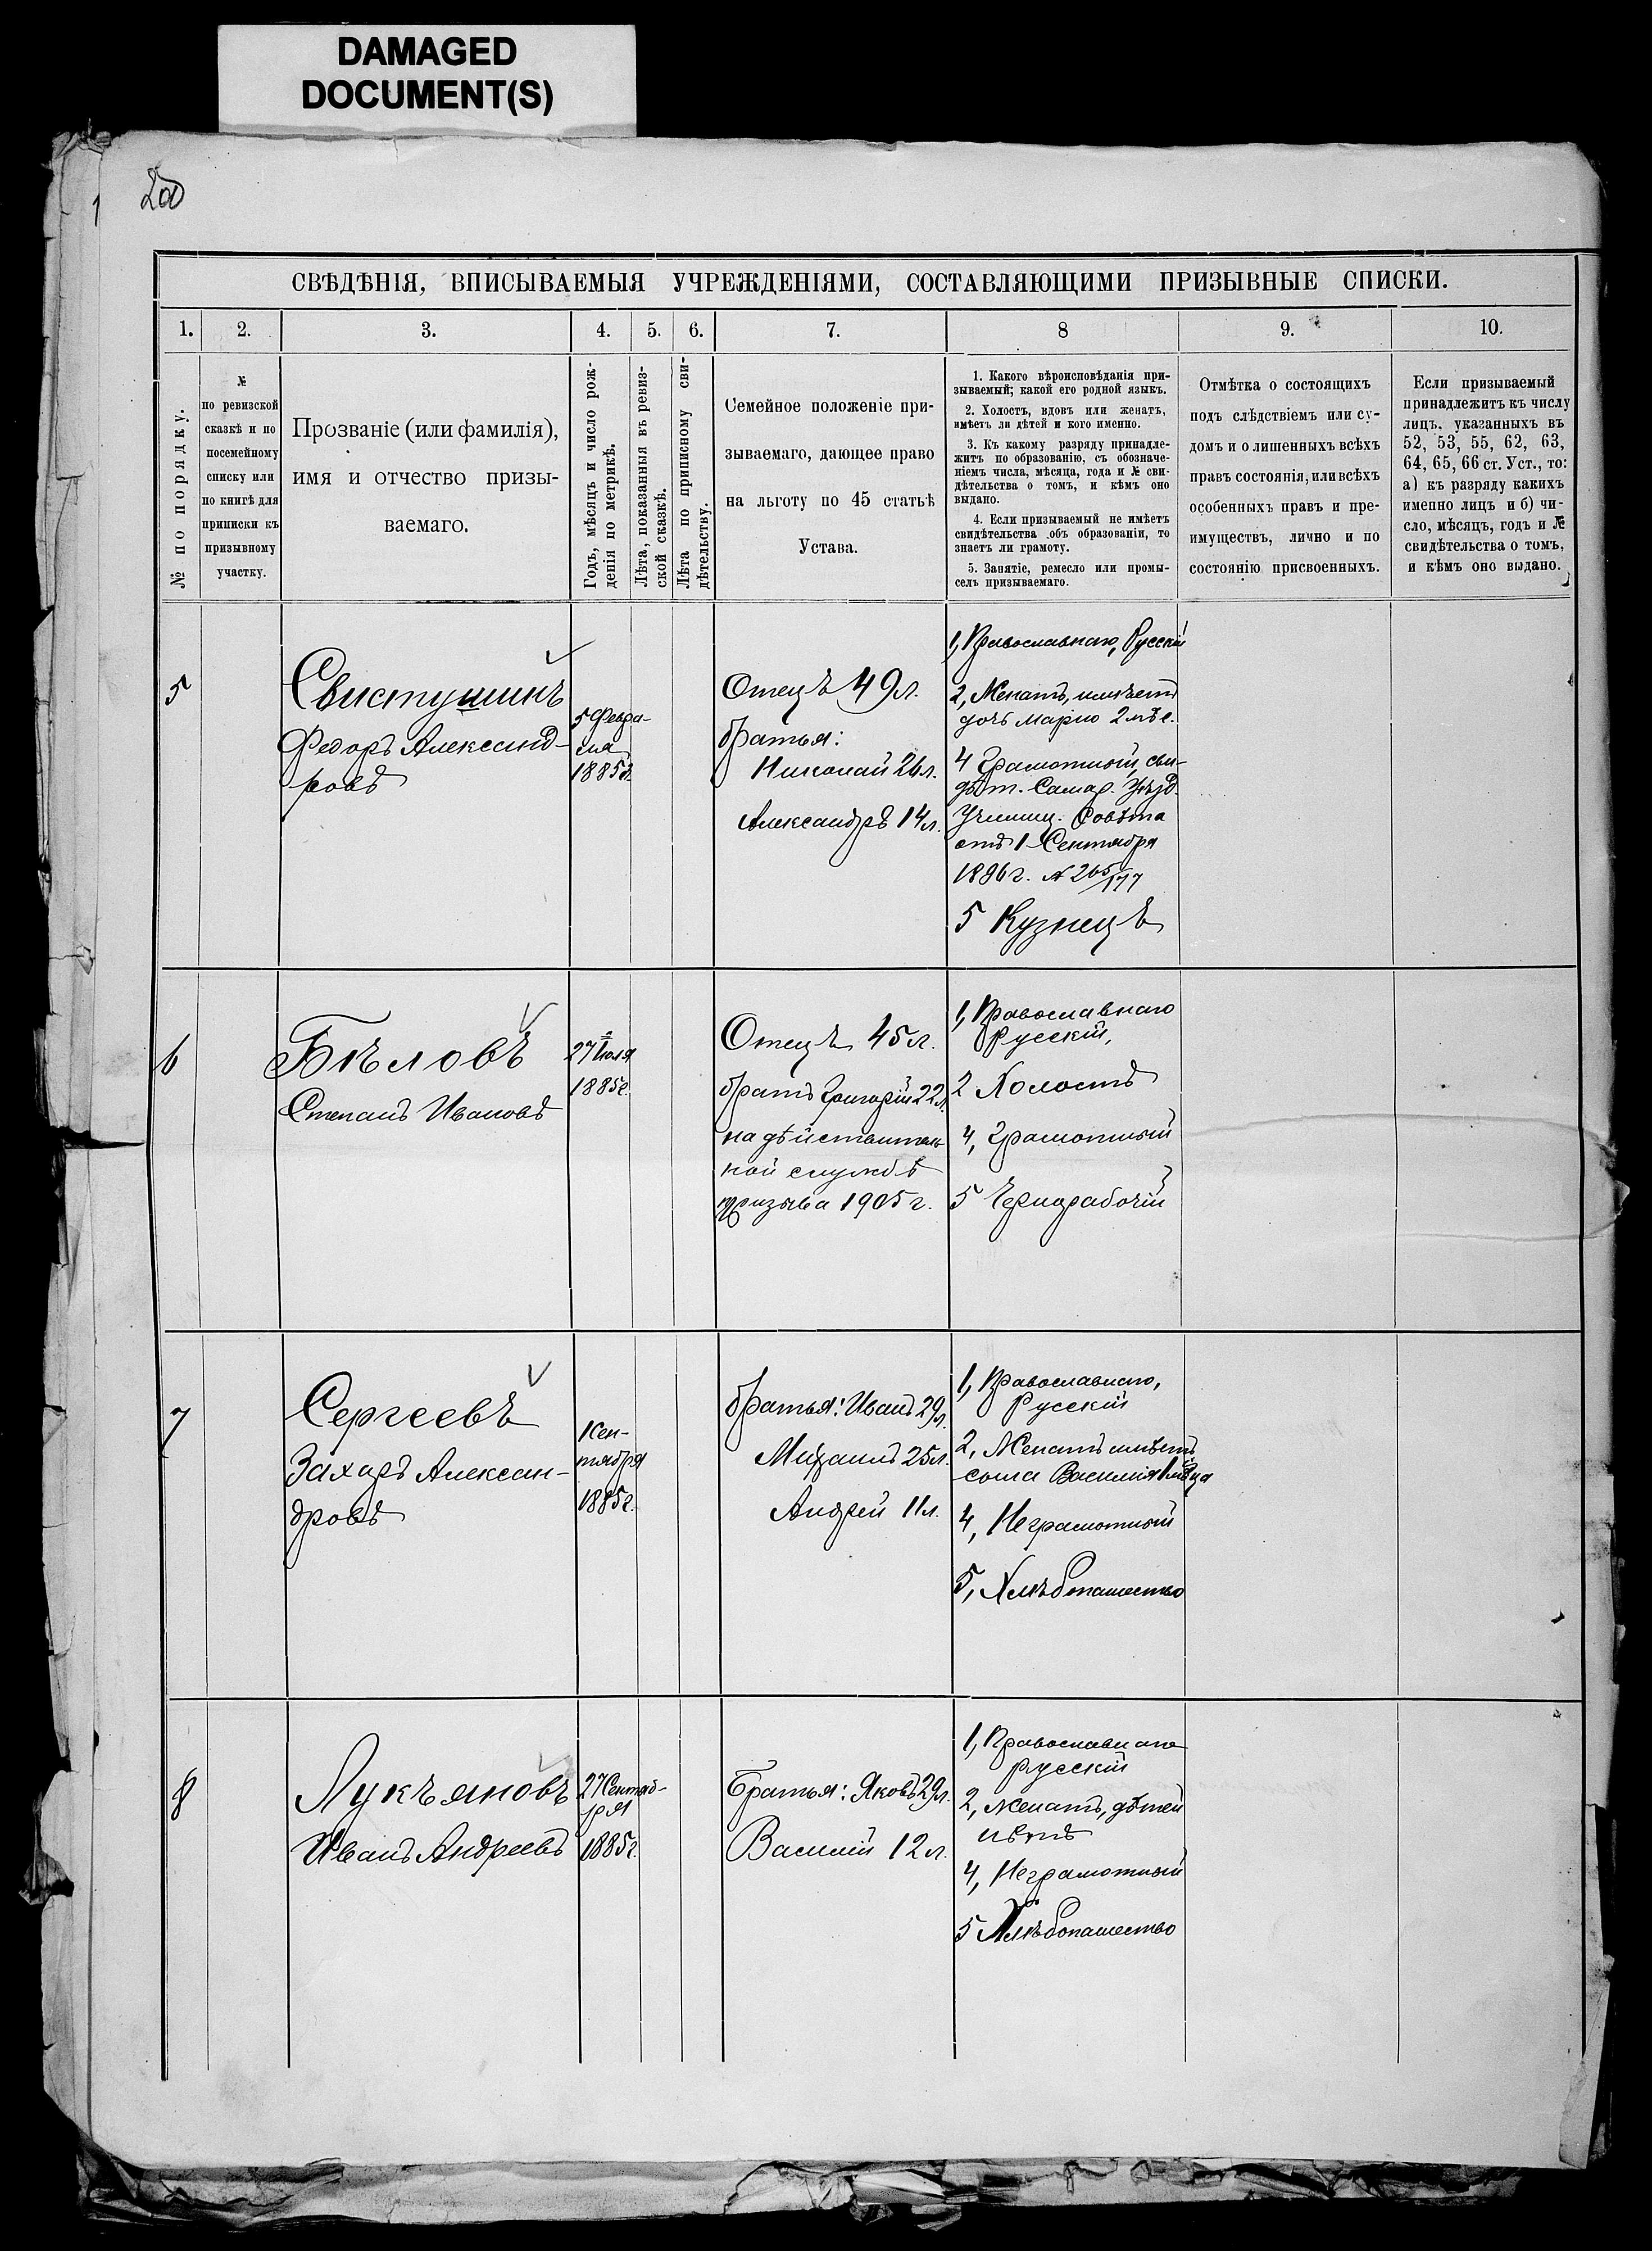 DAMAGED
DOCUMENT(S)
1
СВѢДѢНІЯ, ВПИСЫВАЕМЫЯ УЧРЕЖДЕНІЯМИ, СОСТАВЛЯЮЩИМИ ПРИЗЫВНЫЕ СПИСКИ.
1. 2. 3. 4. 5. 6. 7. 8 9. 10.
№ по порядку.
№
по ревизской
сказкѣ и по
посемейному
списку или
по книгѣ для
приписки къ
призывному
участку.
Прозваніе (или фамилія),
имя и отчество призы-
ваемаго.
Годъ, мѣсяцъ и число рож-
денія по метрикѣ.
Лѣта, показанныя въ ревиз-
ской сказкѣ.
Лѣта по приписному сви-
дѣтельству.
Семейное положеніе при-
зываемаго, дающее право
на льготу по 45 статьѣ
Устава.
1. Какого вѣроисповѣданія при-
зываемый; какой его родной языкъ.
2. Холостъ, вдовъ или женатъ,
имѣетъ ли дѣтей и кого именно.
3. Къ какому разряду принадле-
житъ по образованію, съ обозначе-
ніемъ числа, мѣсяца, года и № сви-
дѣтельства о томъ, и кѣмъ оно
выдано.
4. Если призываемый не имѣетъ
свидѣтельства объ образованіи, то
знаетъ ли грамоту.
5. Занятіе, ремесло или промы-
селъ призываемаго.
Отмѣтка о состоящихъ
подъ слѣдствіемъ или су-
домъ и о лишенныхъ всѣхъ
правъ состоянія, или всѣхъ
особенныхъ правъ и пре-
имуществъ, лично и по
состоянію присвоенныхъ.
Если призываемый
принадлежитъ къ числу
лицъ, указанныхъ въ
52, 53, 55, 62, 63,
64, 65, 66 ст. Уст., то:
а) къ разряду какихъ
именно лицъ и б) чи-
сло, мѣсяцъ, годъ и №
свидѣтельства о томъ,
и кѣмъ оно выдано.
5
Свистушинъ
Федоръ Александ-
ровъ
5 Февра-
ля
1885г.
Отецъ 49л.
братья:
Николай 26л.
Александръ 14л.
1, Православнаго, Русскій
2, Женатъ, имѣетъ
дочь Марію 2 мѣс.
4 Грамотный, сви-
дѣт. Самар. Уѣзд.
Училищ. Совѣта
отъ 1 Сентября
1896г. № 265/177
5 Кузнецъ
6
Бѣловъ
Степанъ Ивановъ
27 Іюля
1885г.
Отецъ 45л.
братъ Григорій 22л.
на дѣйствитель-
ной службѣ
призыва 1905г.
1, Православнаго
Русскій,
2 Холостъ
4, Грамотный
5 Чернорабочій
7
Сергеевъ
Захаръ Алексан-
дровъ
1 Сен-
тября
1885г.
братья: Иванъ 29л.
Михаилъ 25л.
Андрей 11л.
1, Православнаго,
Русскій
2, Женатъ имѣетъ
сына Василія 1 мѣсяца
4, Неграмотный
5, Хлѣбопашество
8
Лукъяновъ
Иванъ Андреевъ
27 Сентяб-
ря
1885г.
Братья: Яковъ 29л.
Василій 12л.
1, Православнаго
русскій
2, женатъ, дѣтей
нѣтъ
4, Неграмотный
5 Хлѣбопашество